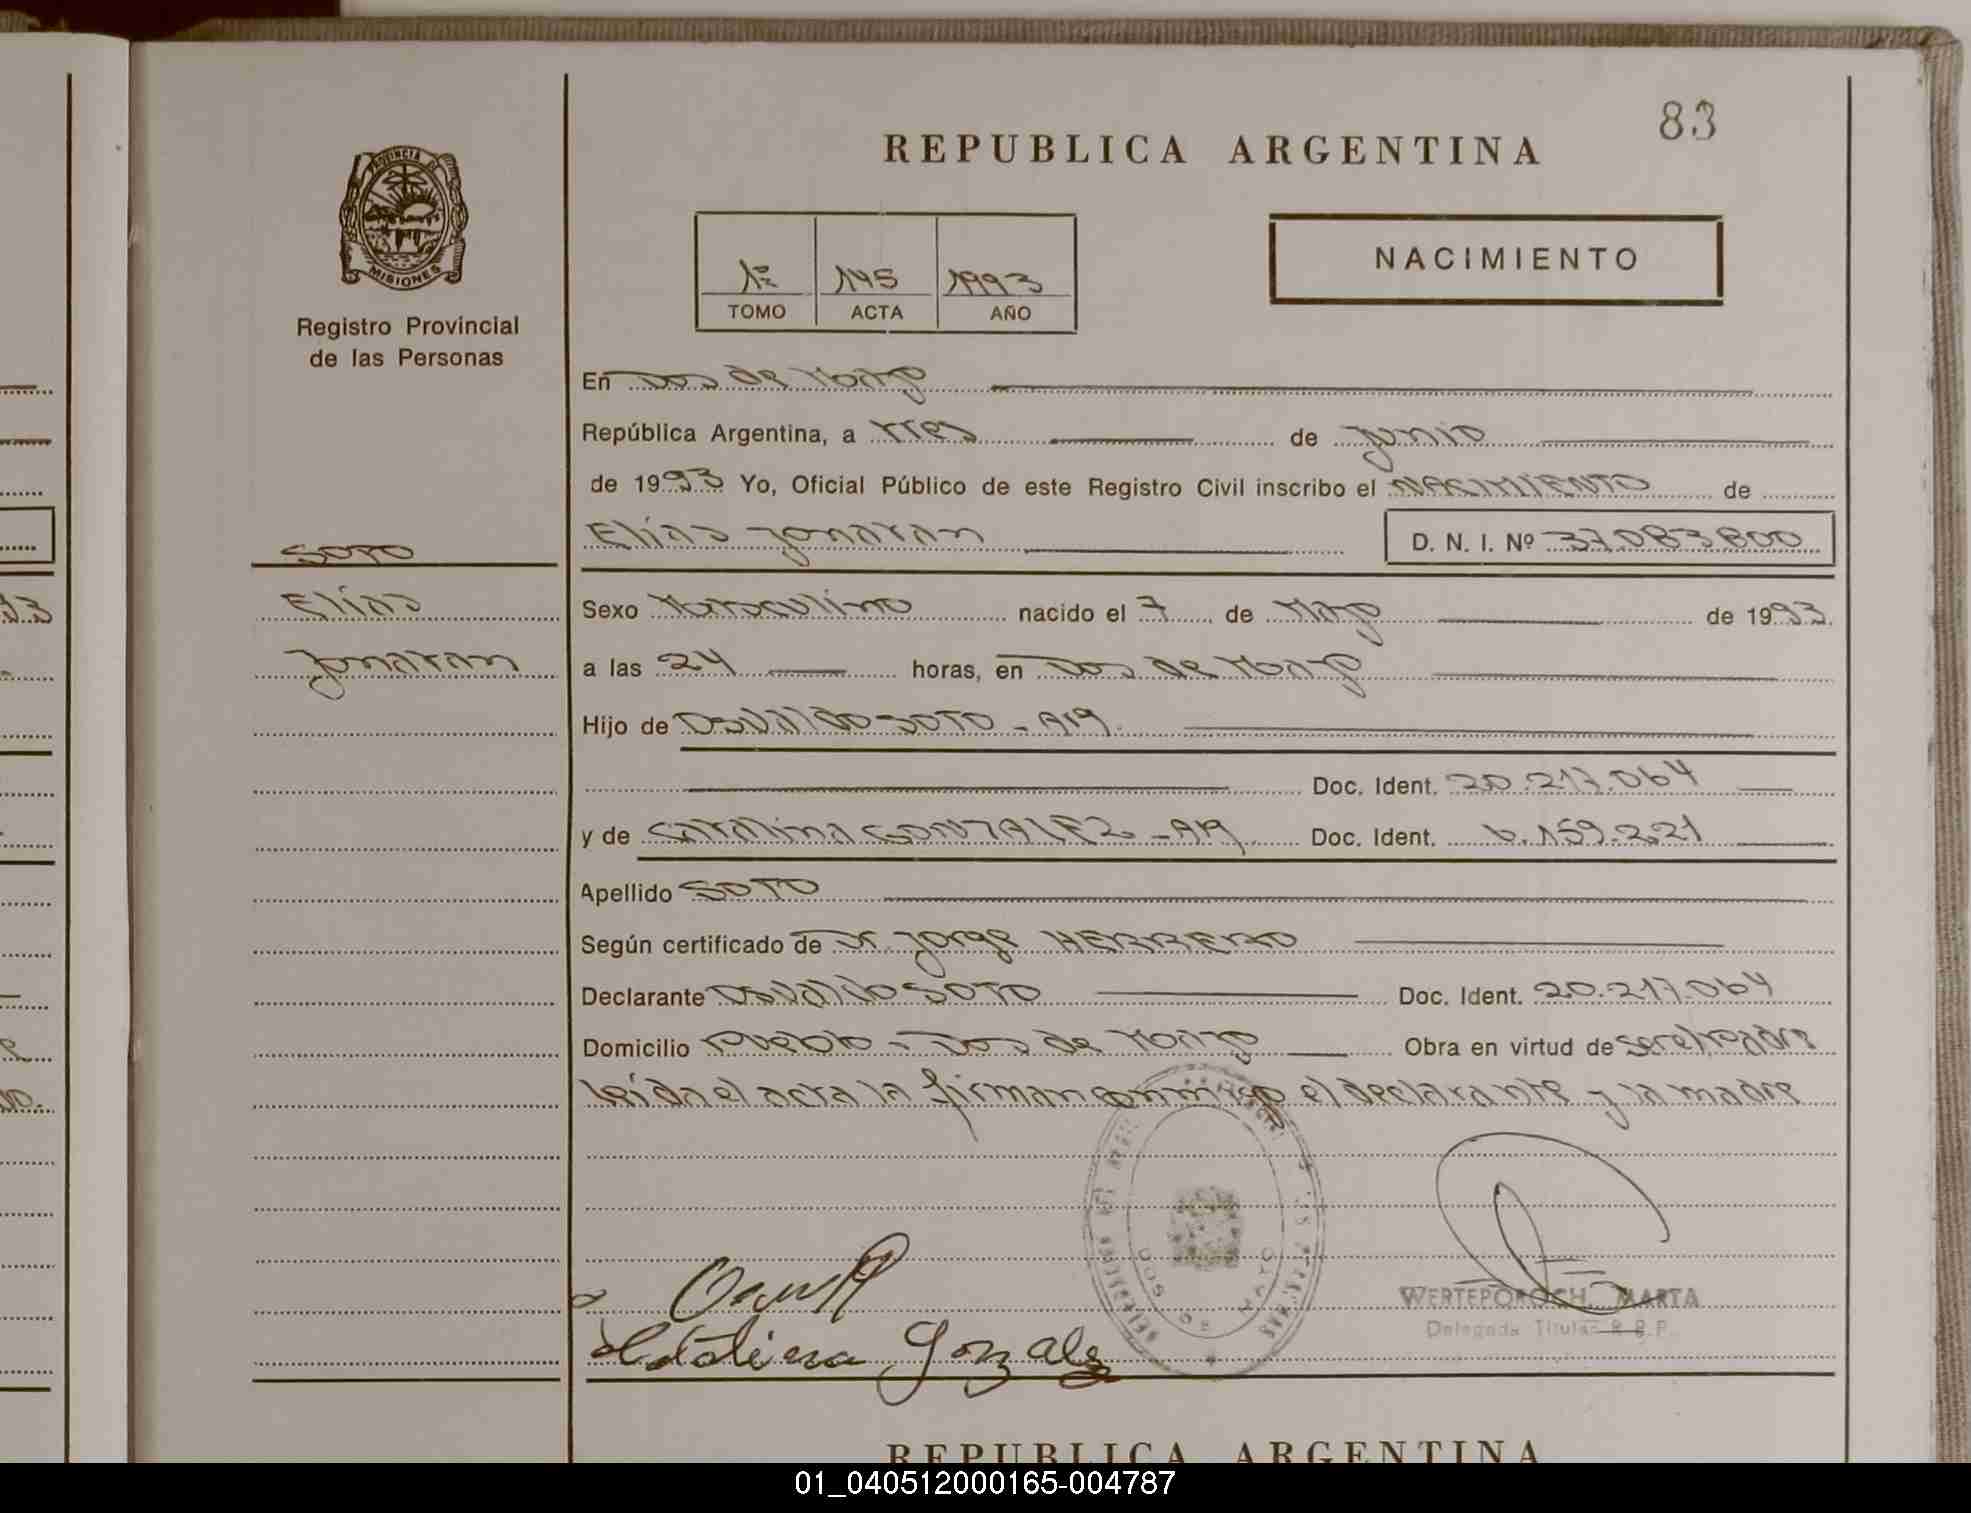 83
REPUBLICA ARGENTINA
PROVINCIA DE
MISIONES
Registro Provincial
de las Personas
1º 145 1993
TOMO ACTA AÑO
NACIMIENTO
En Dos de Mayo
República Argentina, a tres de junio
de 1993 Yo, Oficial Público de este Registro Civil inscribo el NACIMIENTO de
SOTO
Elías Jonatan D. N. I. Nº 37.083.800
Elías
Jonatan
Sexo Masculino nacido el 7 de Mayo de 1993
a las 24 horas, en Dos de Mayo
Hijo de Osvaldo SOTO - Arg.
Doc. Ident. 20.217.064
y de Catalina GONZALEZ - Arg Doc. Ident. 6.159.221
Apellido SOTO
Según certificado de Dr. Jorge HERRERO
Declarante Osvaldo SOTO Doc. Ident. 20.217.064
Domicilio Pueblo - Dos de Mayo Obra en virtud de ser el padre
leída el acta la firman conmigo el declarante y la madre
DOS DE MAYO
WERTEPOROCH, MARTA
Delegada Titular R.P.P.
Catalina Gonzalez
REPUBLICA ARGENTINA
01_040512000165-004787